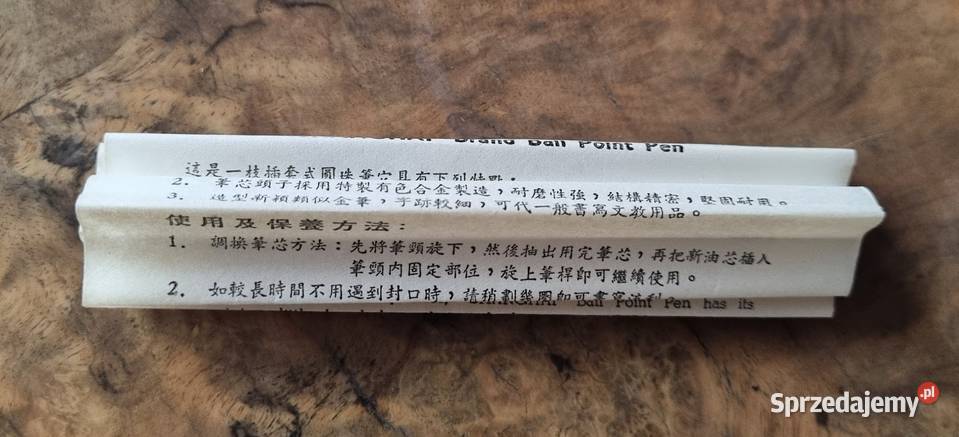 Brand Ball Point Pen
這是一枝插套式圓珠筆它具有下列特點．
2. 筆芯頭子採用特製有色合金製造，耐磨性強，結構精密，堅固耐用。
3. 造型新穎類似金筆，字跡較細，可代一般書寫文教用品。
使用及保養方法：
1. 調換筆芯方法：先將筆頸旋下，然後抽出用完筆芯，再把新油芯插入
筆頸內固定部位，旋上筆桿即可繼續使用。
2. 如較長時間不用遇到封口時，請稍劃幾圈即可書寫流利
Ball Point Pen has its
Sprzedajemy.pl